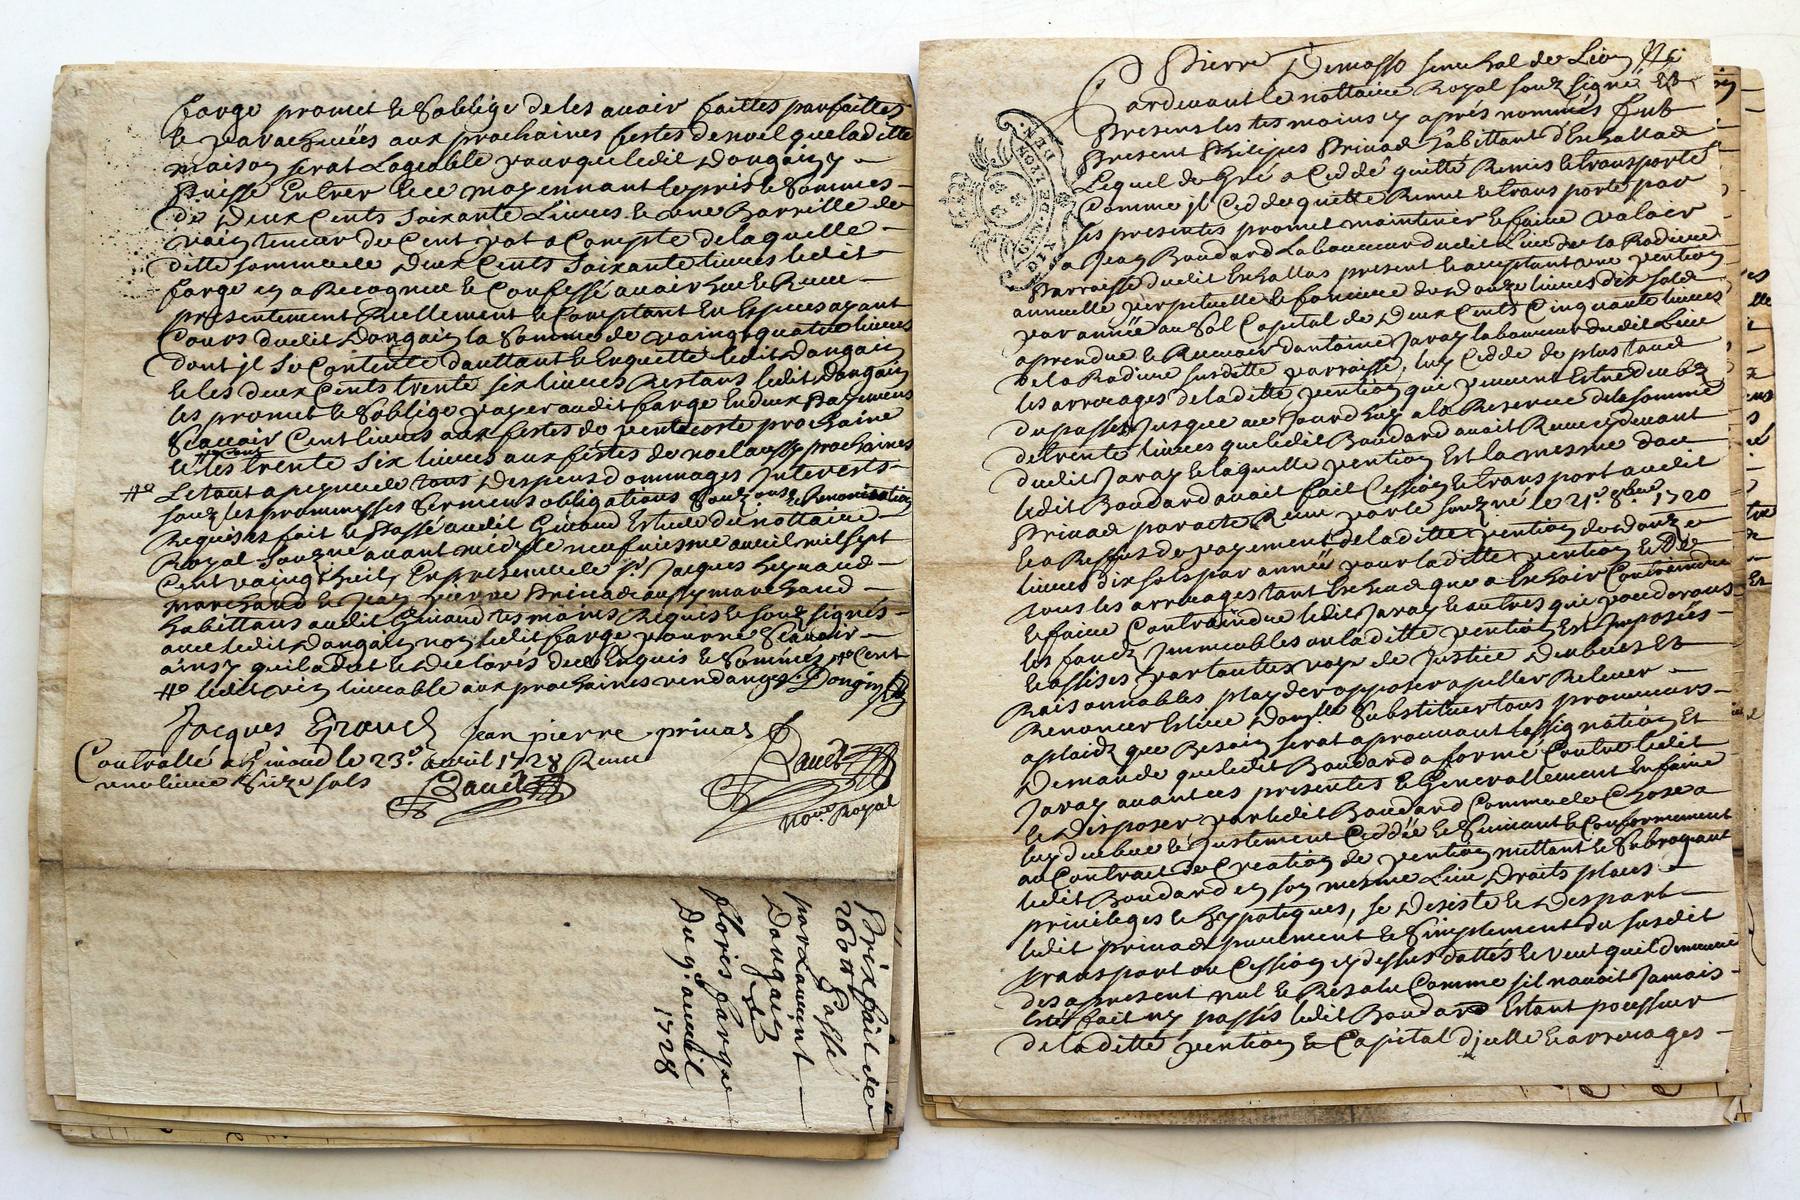 farge promet & soblige de les avoir faittes parfaittes
& parachevées aux prochaines festes de noel que laditte
maison serat Logeable pour que ledit Dongain y
puisse Entrer & ce moyennant le pris & somme
de Deux Cents soixante Livres & une Barrille de
vain teneur de Cent pot a Compte de laquelle
ditte somme de Deux Cents soixante livres ledit
farge en a Recognue & Confessé avoir heu & Receu
présentement Réellement & Comptant En Espèces ayant
Cours dudit Dongain la somme de vaingt quatre livres
dont jl se Contente dauttant & Enquitte ledit Dongain
& les deux Cents trente six livres Restans ledit Dongain
les promet & soblige payer audit farge En deux payemens
sçavoir Cent livres aux festes de pentecoste prochaine
& les trente six livres aux festes de noel aussy prochaines
Le tout a peyne de tous Despens dommages Interests
souz les promesses sermens obligations Renonciation
Requises fait & Passé audit Giraud Estude du nottaire
Royal souzné avant midy le neufviesme avril mil sept
Cent vaingt huit En presence de sr. Jacques Heyraud
marchand & Jean pierre Privad aussy marchand
habittans audit Giraud tesmoins Requis & souz signés
avec ledit Dongain non ledit farge pour ne sçavoir
ainsy quil a dit & Declarés de ce Enquis & sommés Cent
ledit vin livrable aux prochaines vendanges Dongin
Jacques Eyraud Jean pierre privas
Controllé a Giraud le 23e. avril 1728 Receu
une livre seize sols
Baudt
Baudt
nore. Royal
Prixfait de
260 tt Passé
par Laurent
Dongain
&
floris farge
Du 9. avril
1728
Pierre Demasso senechal de Lion
Pardevant le nottaire Royal souz signé &
Presens les tesmoins cy aprés nommés fut
Present Philipes Privad habittant d'Enhallas
Lequel de Gré a Ceddé quitté Remis & transporté
Comme jl Cedde quitte Remet & transporte par
ses presentes promet maintenir & faire valoir
a Jean Boudard Laboureur dudit Lieu de la Rodiere
Parroisse dudit Enhallas present & acceptant une pention
annuelle perpetuelle & fonciere de Douze livres dix sols
par année au sol Capital de Deux Cents Cinquante livres
aprendre & Recevoir dantoine Javay laboureur dudit Lieu
de la Rodiere susditte parroisse, luy Cedde de plus tous
les arrerages de laditte pention que peuvent Estre deubz
du passé Jusque au Jourdhuy a la Reserve de la somme
de trente livres que ledit Boudard avoit Receu cy devant
dudit Javay & laquelle pention Est la mesme dont
ledit Boudard avoit fait Cession & transport audit
Privad par acte Receu par le souzné le 21e. 8bre 1720
& a Reffus de payement de laditte pention de douze
livres dix sols par année pour laditte pention & de
tous les arrerages tant Escheus que a Escheoir Contraindre
& faire Contraindre ledit Javay & autres qui possederons
les fonds Jmmeubles ou laditte pention Est Imposée
& assises par toutes voyes de Justice Deubues &
Raisonnables playder opposer apeller Relever
Renoncer Eslire Domicille substituer tous procureurs
a plaidz que Besoin serat aprouvant lassignation Et
Demande que ledit Boudard a formé Contre ledit
Javay avant ces presentes & Generallement En faire
& Disposer par ledit Boudard Comme de Chose a
luy deubue & Justement Ceddée & suivant & Conformement
au Contrait de Creation de pention mettant & subrogeant
ledit Boudard en son mesme Lieu Droits places
privileges & hypoteques, se Desiste & Despart
ledit privad purement & simplement du susdit
transport ou Cession cy dessus dattés & veut quil demeure
des apresent nul & Resolu Comme sil navoit Jamais
Esté fait ny passés ledit Boudard Estant possesseur
de laditte pention & Capital d'jcelle & arrerages